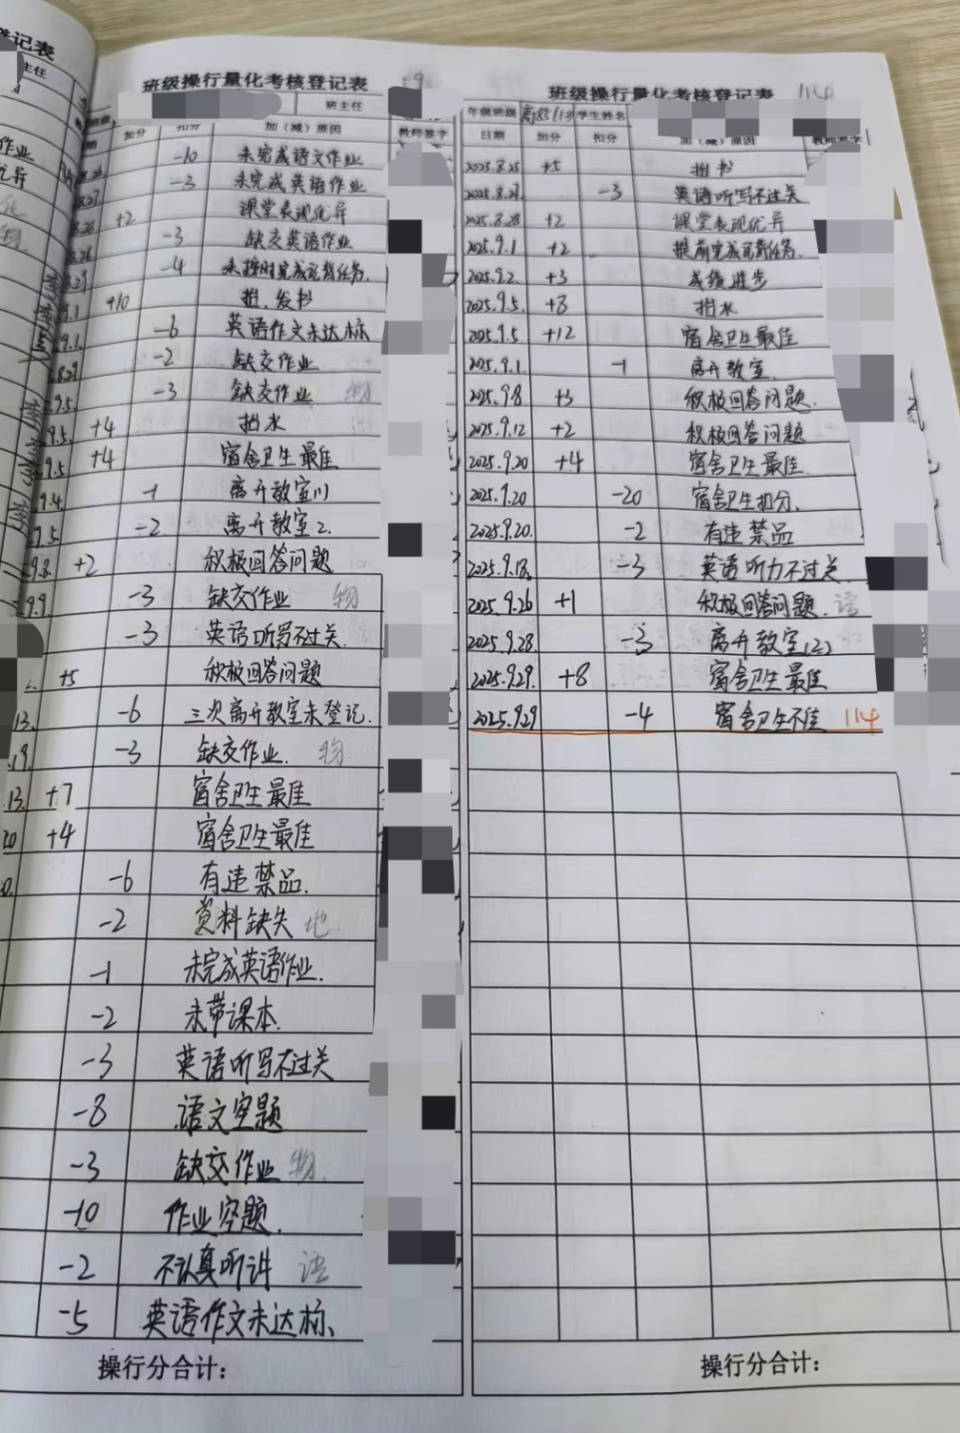 登记表
主任
作业
优异
班级操行量化考核登记表
班主任
加分 扣分 加（减）原因 教师签字
-10 未完成语文作业
-3 未完成英语作业
+2 课堂表现优异
-3 缺交英语作业
-4 未按时完成记背任务.
9.1 +10 抬.发书
9.1. -6 英语作文未达标
8.29 -2 缺交作业
9.5. -3 缺交作业 物
9.5. +4 抬水
9.5 +4 宿舍卫生最佳
9.4. -1 离开教室1)
9.5 -2 离开教室2.
9.8. +2 积极回答问题
9.9. -3 缺交作业 物
-3 英语听写不过关.
+5 积极回答问题
13. -6 三次离开教室未登记.
.19. -3 缺交作业. 物.
.13. +7 宿舍卫生最佳
20 +4 宿舍卫生最佳
-6 有违禁品.
-2 资料缺失 地
-1 未完成英语作业.
-2 未带课本.
-3 英语听写不过关
-8 语文空题
-3 缺交作业 物.
-10 作业空题.
-2 不认真听讲 语
-5 英语作文未达标、
操行分合计：
班级操行量化考核登记表 114
年级班级 学生姓名
日期 加分 扣分 加（减）原因 教师签字
2025.8.25 +5 抬书
2025.8.27. -3 英语听写不过关
2025.8.28 +2 课堂表现优异
2025.9.1 +2 提前完成记背任务.
2025.9.2. +3 成绩进步
2025.9.5. +8 抬水
2025.9.5 +12 宿舍卫生最佳
2025.9.1 -1 离开教室.
2025.9.8 +3 积极回答问题.
2025.9.12 +2 积极回答问题
2025.9.20 +4 宿舍卫生最佳.
2025.9.20 -20 宿舍卫生扣分、
2025.9.20. -2 有违禁品
2025.9.18. -3 英语听力不过关.
2025.9.26 +1 积极回答问题. 语
2025.9.28 -3 离开教室(2)
2025.9.29. +8 宿舍卫生最佳
2025.9.29 -4 宿舍卫生不佳 114
操行分合计：